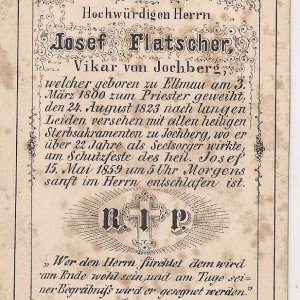 Hochwürdigen Herrn
Josef Flatscher,
Vikar von Jochberg,
welcher geboren zu Ellmau am 3.
März 1800 zum Priester geweiht,
den 24. August 1823 nach langen
Leiden versehen mit allen heiligen
Sterbsakramenten zu Jochberg, wo er
über 22 Jahre als Seelsorger wirkte,
am Schutzfeste des heil. Josef
15. Mai 1859 um 5 Uhr Morgens
sanft im Herrn entschlafen ist.
R. I. P.
„Wer den Herrn fürchtet dem wird
am Ende wohl sein, und am Tage sei-
ner Begräbniß wird er gesegnet werden."